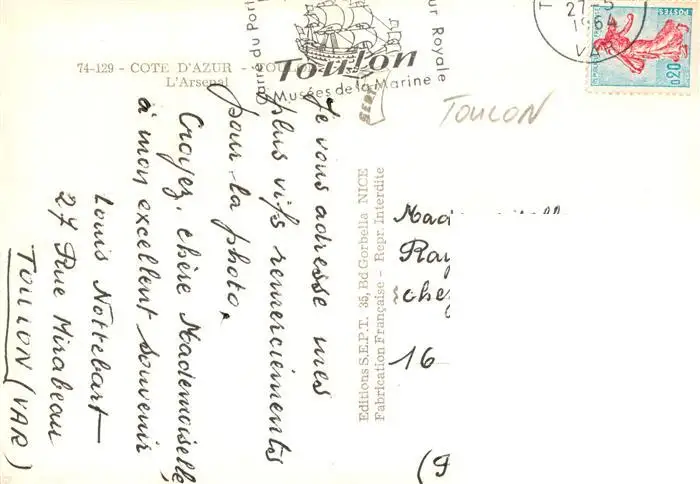 74-129 - COTE D'AZUR -
L'Arsenal
ur Royale
Toulon
Musées de la Marine
27-5
1964
VA
0,20
POSTES
TOULON
Je vous adresse mes
plus vifs remerciements
pour la photo.
Croyez, chère Mademoiselle,
à mon excellent souvenir
Louis Nottebart
27 Rue Mirabeau
TOULON (VAR)
Editions S.E.P.T. 35, Bd Gorbella NICE
Fabrication Française - Repr. Interdite
Mad
Ray
chez
16